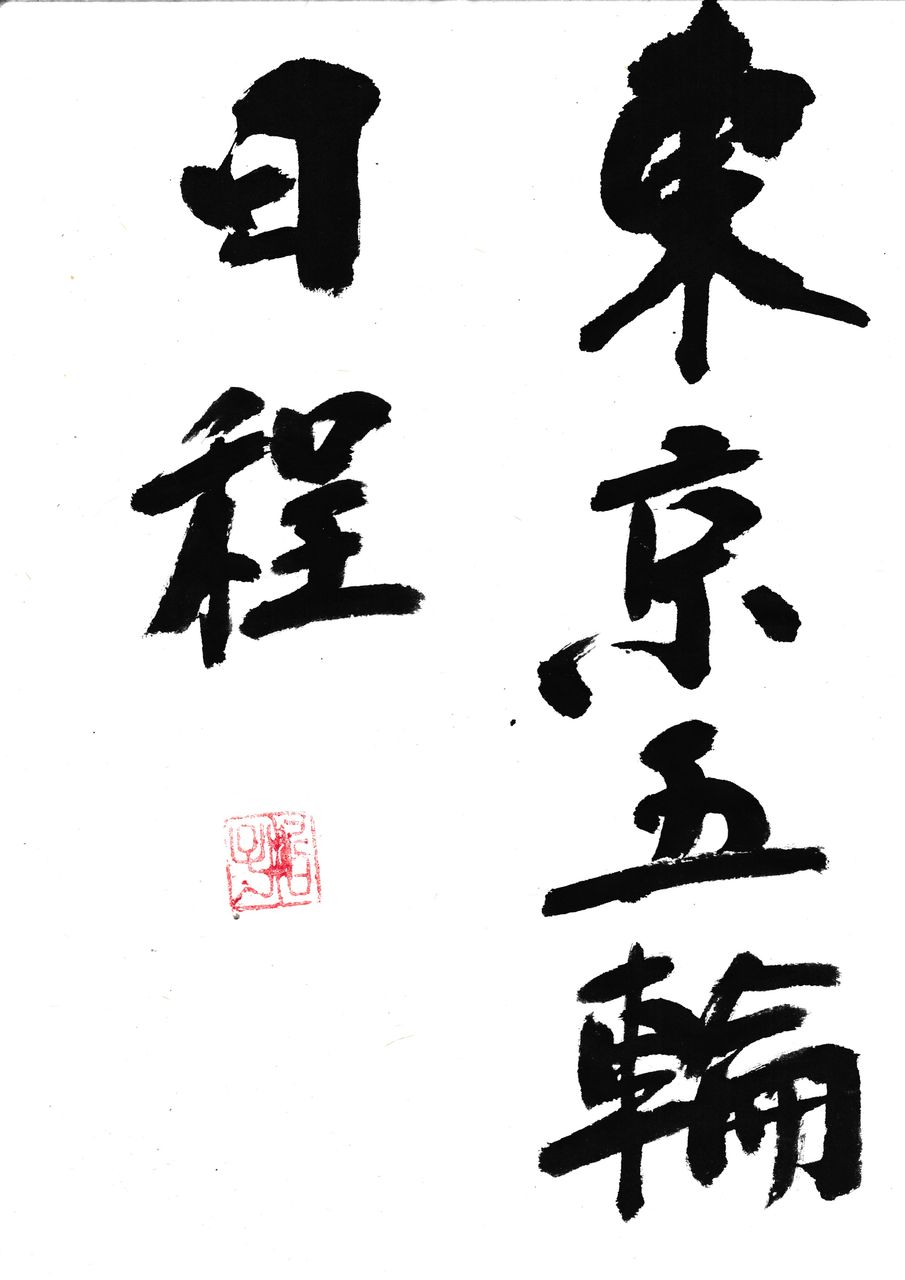 東京五輪
日程